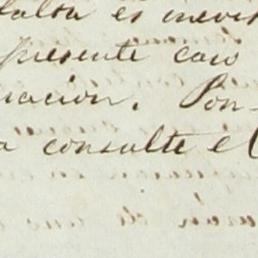 falta es inevi
presente caso
uacion. Pon-
a consulte el